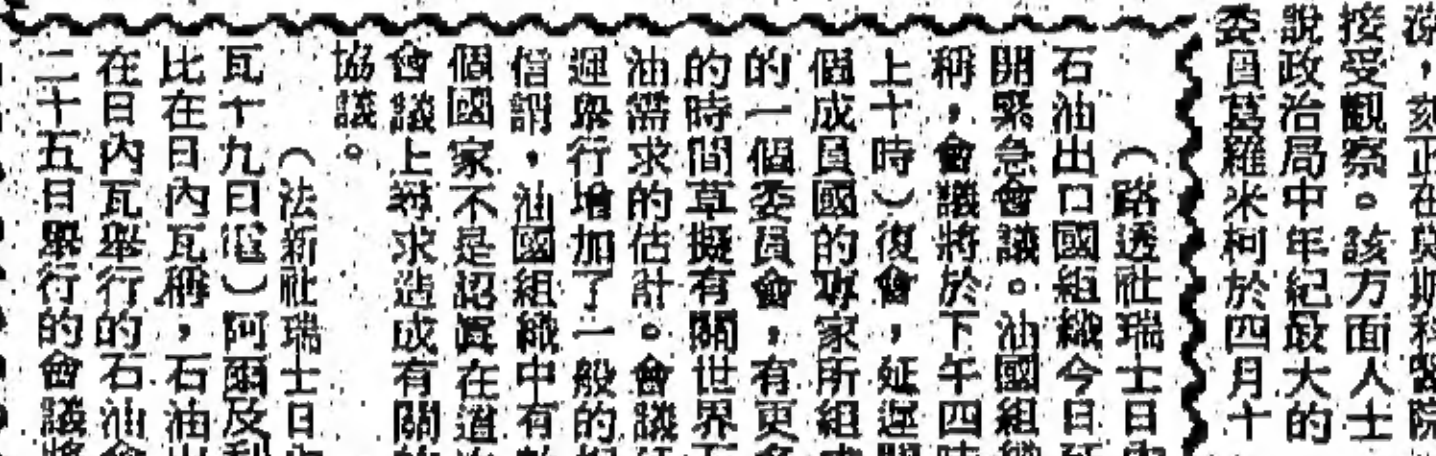 涼,刻正在莫斯科醫院
接受觀察。該方面人士
說政治局中年紀最大的
委員葛羅米柯於四月十
(路透社瑞士日內
石油出口國組織今日
開緊急會議。油國組織
稱,會議將於下午四時
上十時)復會,延遲
個成員國的專家所組成
的一個委員會,有更多
的時間草擬有關世界石
油需求的估計。會議
逕舉行增加了一般的
信謂,油國組織中有
個國家不是認眞在這次
會議上尋求造成有關的
協議。
(法新社瑞士日內
瓦十九日電)阿爾及利
比在日內瓦稱,石油出
在日內瓦舉行的石油會
二十五日舉行的會議將